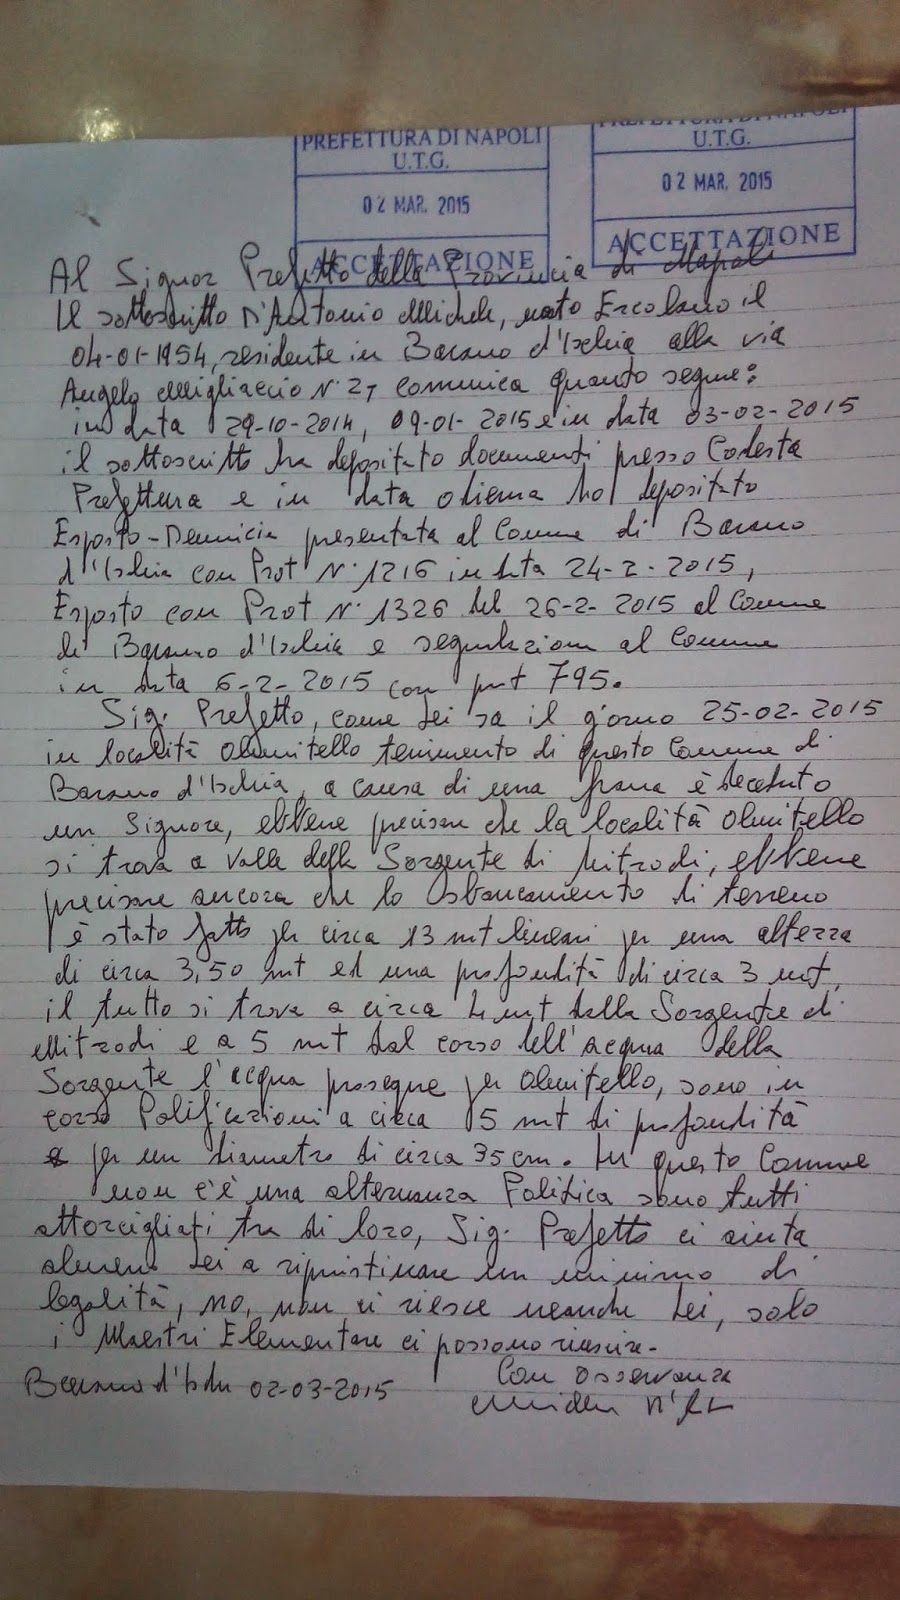 PREFETTURA DI NAPOLI
U.T.G.
02 MAR. 2015
ACCETTAZIONE
PREFETTURA DI NAPOLI
U.T.G.
02 MAR. 2015
ACCETTAZIONE
Al Signor Prefetto della Provincia di Napoli
Il sottoscritto D'Antonio Michele, nato Ercolano il
04-01-1954, residente in Barano d'Ischia alla via
Angelo Migliaccio N. 27 comunica quanto segue:
in data 29-10-2014, 09-01-2015 e in data 03-02-2015
il sottoscritto ha depositato documenti presso Codesta
Prefettura e in data odierna ho depositato
Esposto-Denuncia presentata al Comune di Barano
d'Ischia con Prot N. 1216 in data 24-2-2015,
Esposto con Prot N. 1326 del 26-2-2015 al Comune
di Barano d'Ischia e segnalazione al Comune
in data 6-2-2015 con prot 795.
Sig. Prefetto, come Lei sa il giorno 25-02-2015
in località Olmitello tenimento di questo Comune di
Barano d'Ischia, a causa di una frana è deceduto
un Signore, ebbene precisare che la località Olmitello
si trova a valle della Sorgente di Nitrodi, ebbene
precisare ancora che lo sbancamento di terreno
è stato fatto per circa 13 mt lineari per una altezza
di circa 3,50 mt ed una profondità di circa 3 mt,
il tutto si trova a circa mt dalla Sorgente di
Nitrodi e a 5 mt dal corso dell'acqua della
Sorgente l'acqua prosegue per Olmitello, sono in
corso Palificazioni a circa 15 mt di profondità
per un diametro di circa 35 cm. In questo Comune
non c'è una alternanza Politica sono tutti
attorcigliati tra di loro, Sig. Prefetto ci aiuta
almeno Lei a ripristinare un minimo di
legalità, no, non ci riesce neanche Lei, solo
i Maestri Elementare ci possono riuscire.
Barano d'Ischia 02-03-2015
Con Osservanza